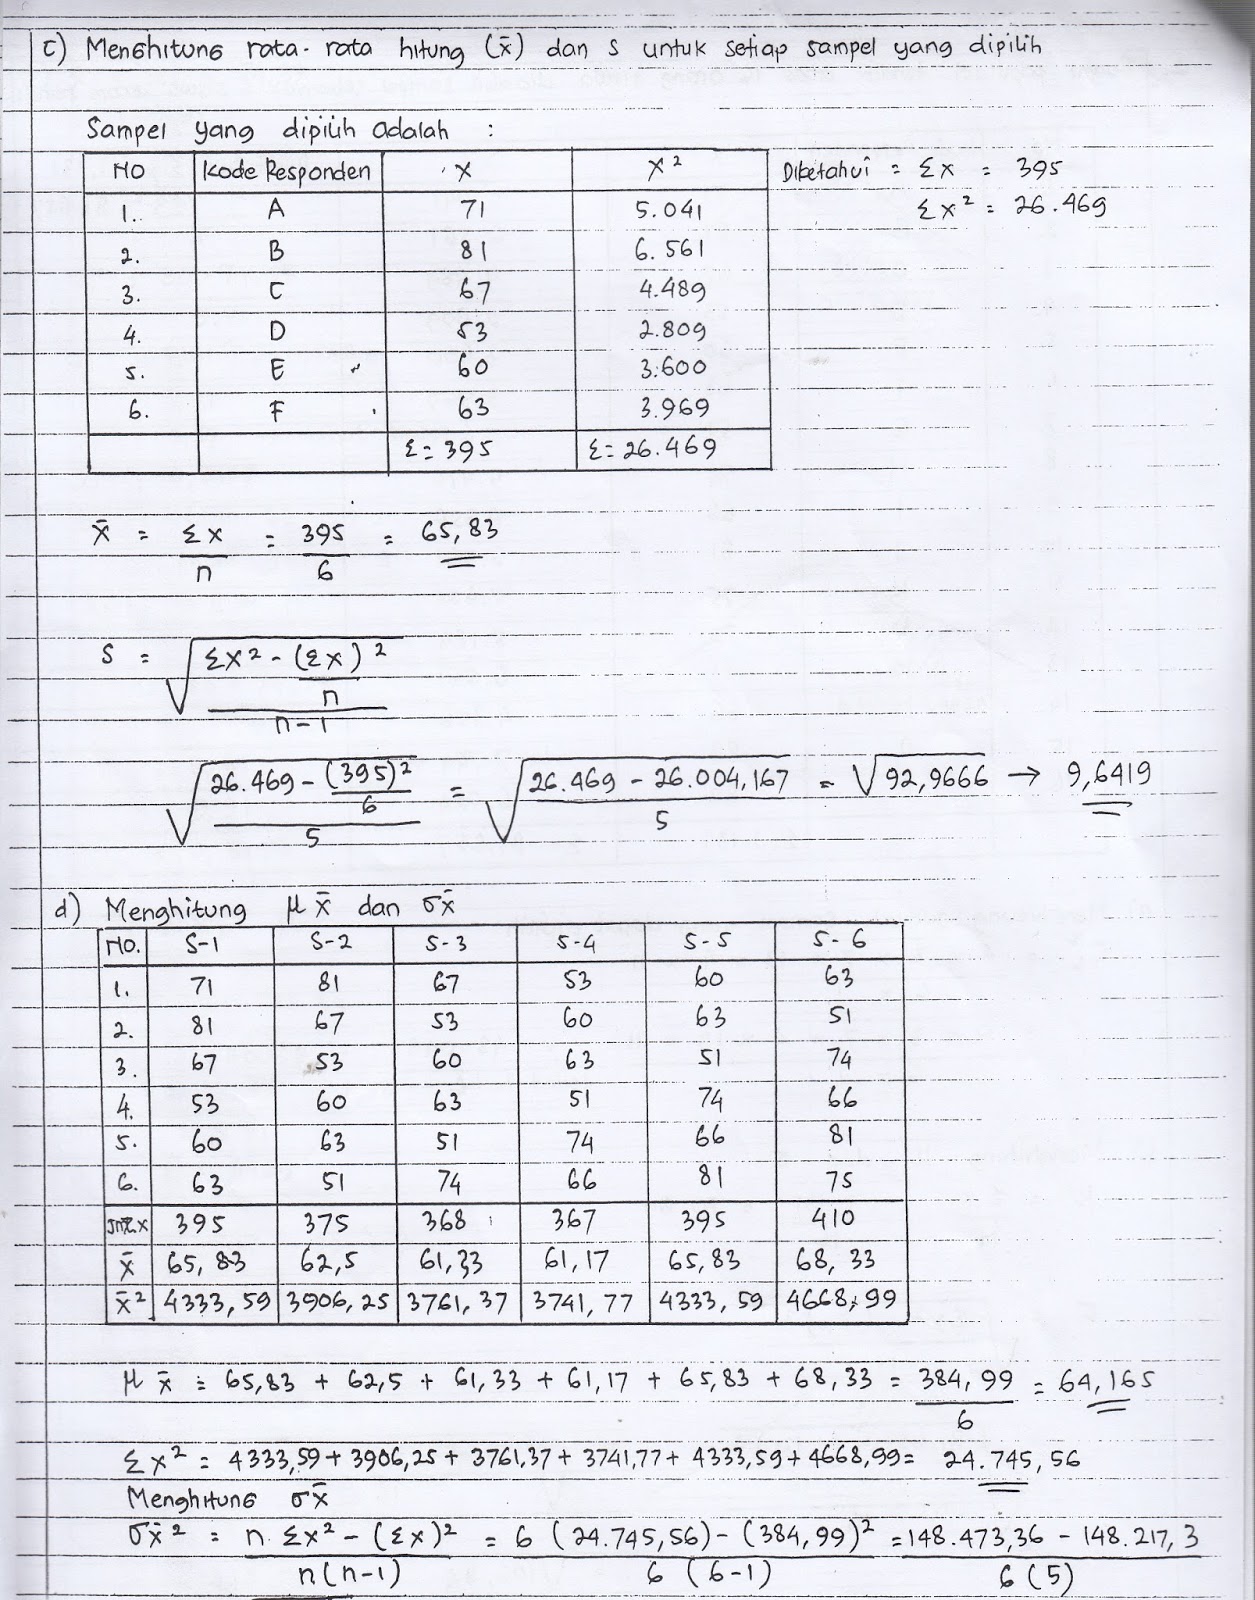 c) Menghitung rata-rata hitung (x̄) dan s untuk setiap sampel yang dipilih
Sampel yang dipilih adalah :
NO Kode Responden X X²
1. A 71 5.041
2. B 81 6.561
3. C 67 4.489
4. D 53 2.809
5. E 60 3.600
6. F 63 3.969
Σ = 395 Σ = 26.469
Diketahui = Σx = 395
Σx² = 26.469
x̄ = Σx/n = 395/6 = 65,83
S = √((Σx² - (Σx)²/n)/(n-1))
√((26.469 - (395)²/6)/5) = √((26.469 - 26.004,167)/5) = √92,9666 → 9,6419
d) Menghitung μx̄ dan σx̄
No. S-1 S-2 S-3 S-4 S-5 S-6
1. 71 81 67 53 60 63
2. 81 67 53 60 63 51
3. 67 53 60 63 51 74
4. 53 60 63 51 74 66
5. 60 63 51 74 66 81
6. 63 51 74 66 81 75
395 375 368 367 395 410
x̄ 65,83 62,5 61,33 61,17 65,83 68,33
x̄² 4333,59 3906,25 3761,37 3741,77 4333,59 4668,99
μx̄ = 65,83 + 62,5 + 61,33 + 61,17 + 65,83 + 68,33 = 384,99/6 = 64,165
Σx² = 4333,59 + 3906,25 + 3761,37 + 3741,77 + 4333,59 + 4668,99 = 24.745,56
Menghitung σx̄
σx̄² = (n. Σx² - (Σx)²)/(n(n-1)) = (6 (24.745,56) - (384,99)²)/(6 (6-1)) = (148.473,36 - 148.217,3)/(6 (5))